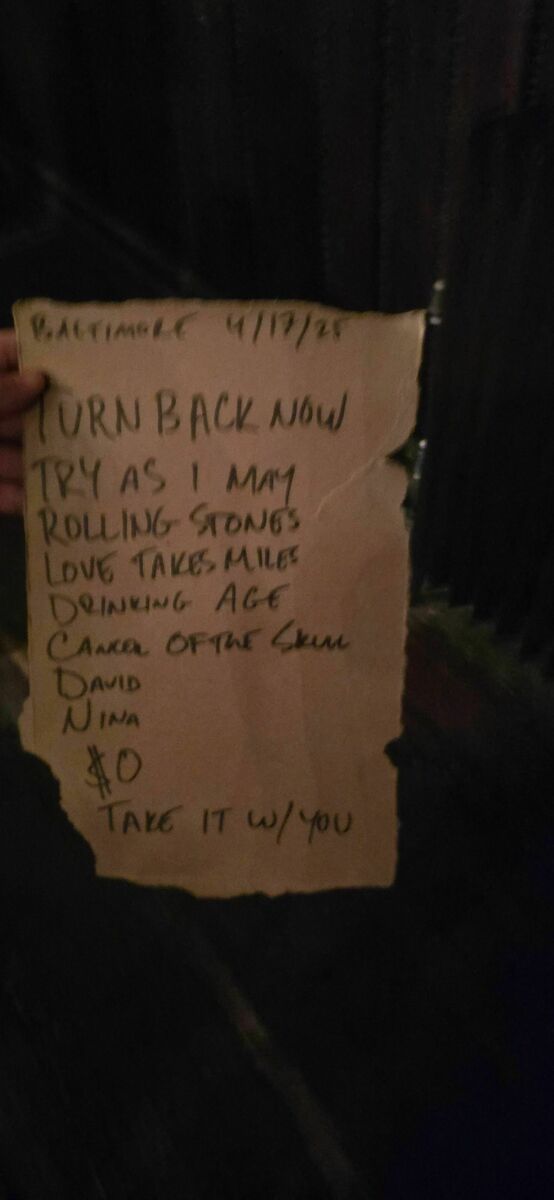 BALTIMORE 4/17/25
TURN BACK NOW
TRY AS I MAY
ROLLING STONES
LOVE TAKES MILES
DRINKING AGE
CANCER OF THE SKULL
DAVID
NINA
$0
TAKE IT W/ YOU